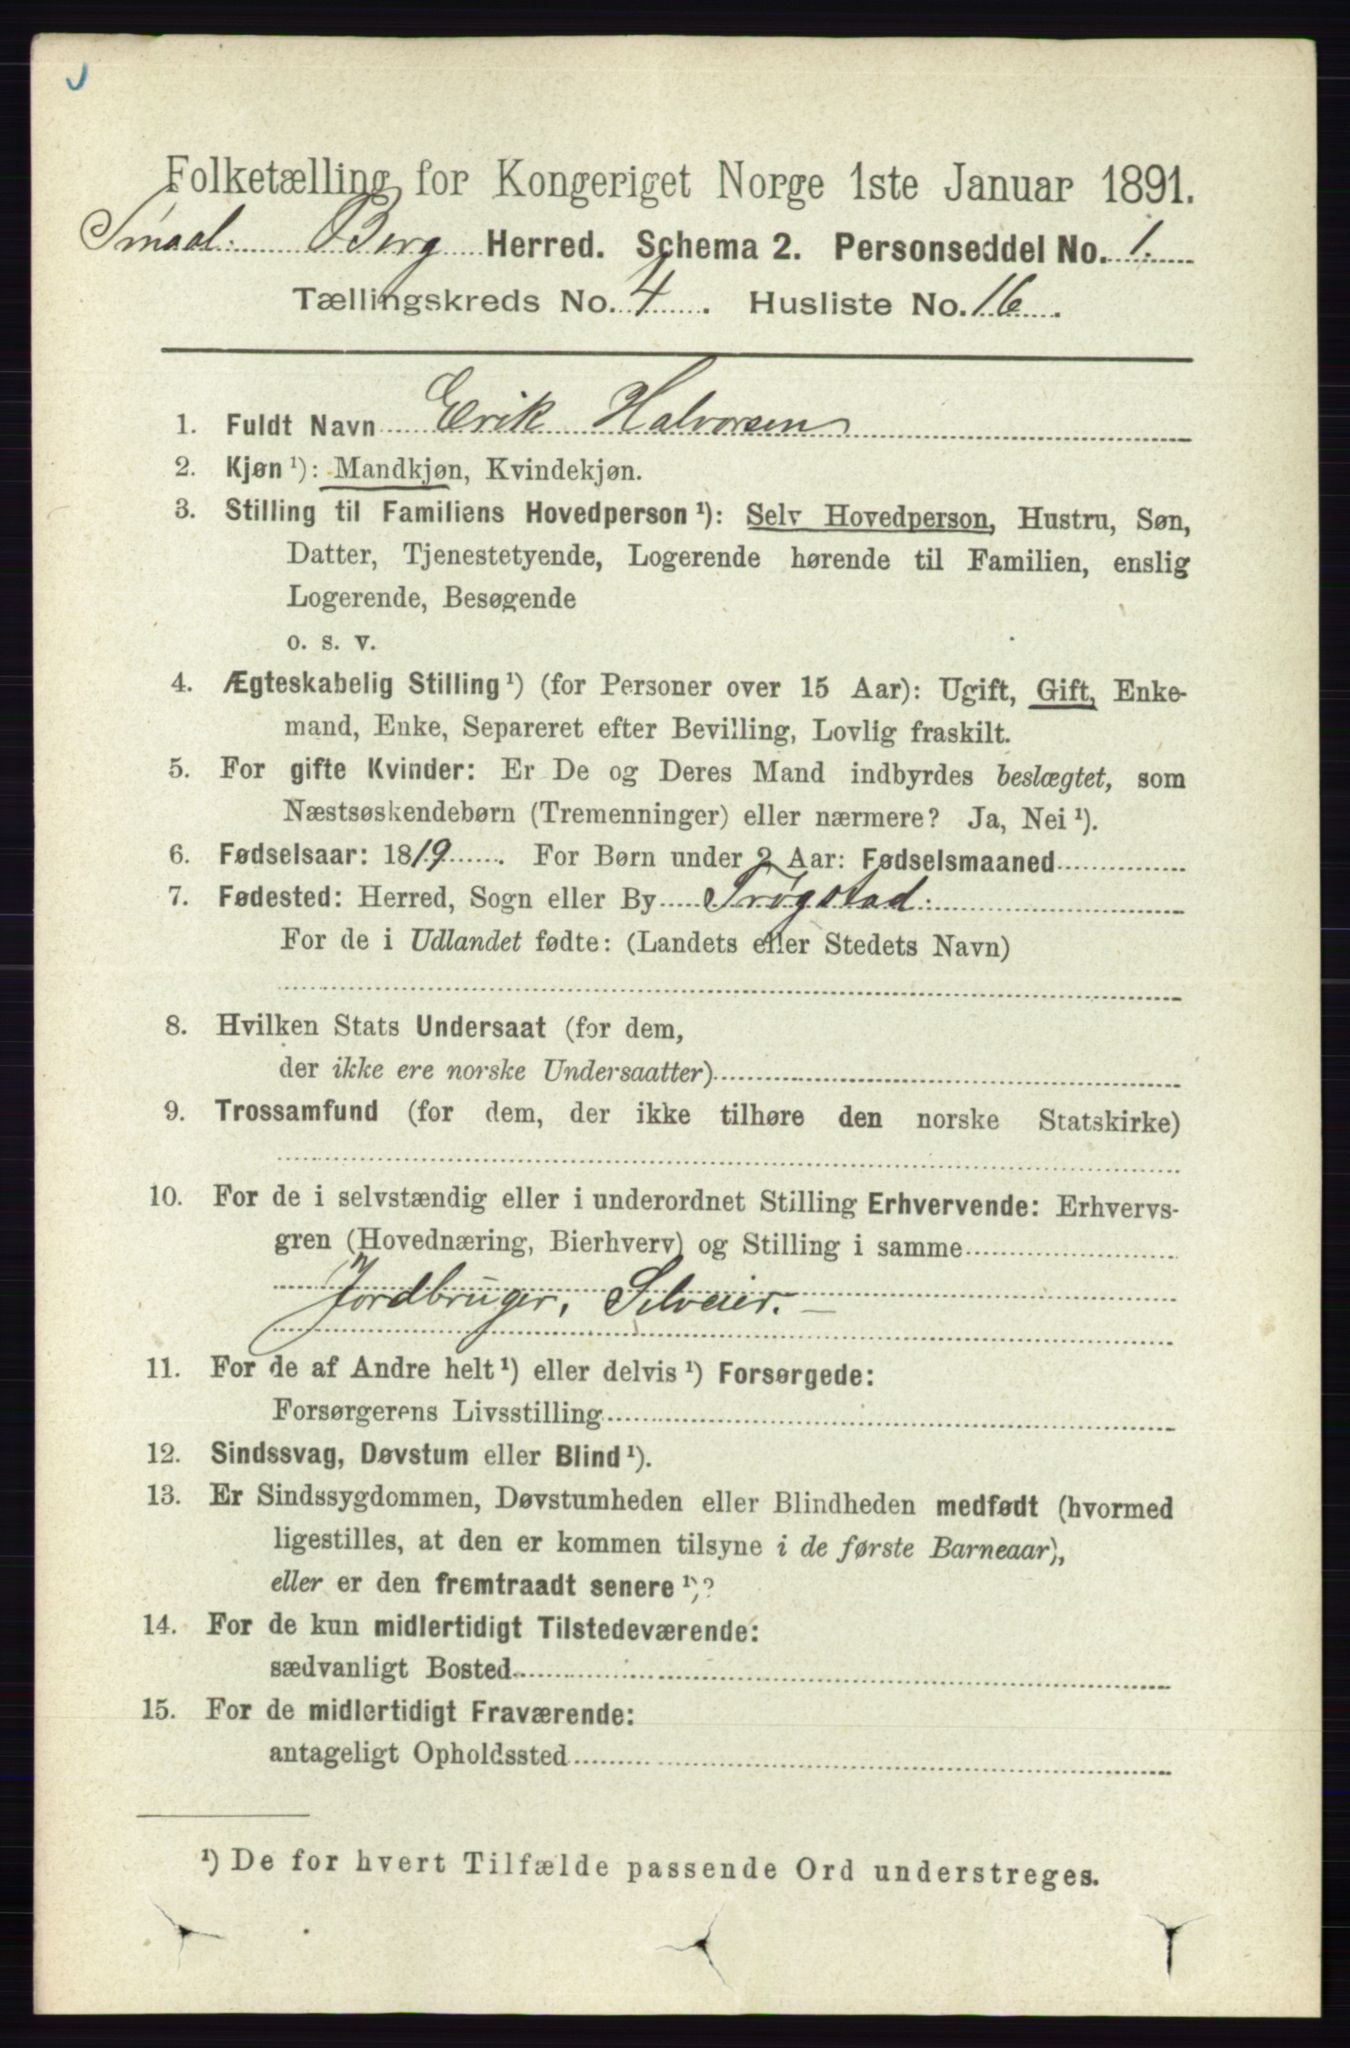 Folketælling for Kongeriget Norge 1ste Januar 1891.
Smaal. Berg Herred. Schema 2. Personseddel No. 1.
Tællingskreds No. 4. Husliste No. 16.
1. Fuldt Navn Erik Halvorsen
2. Kjøn ¹): Mandkjøn, Kvindekjøn.
3. Stilling til Familiens Hovedperson ¹): Selv Hovedperson, Hustru, Søn,
Datter, Tjenestetyende, Logerende hørende til Familien, enslig
Logerende, Besøgende
o. s. v.
4. Ægteskabelig Stilling ¹) (for Personer over 15 Aar): Ugift, Gift, Enke-
mand, Enke, Separeret efter Bevilling, Lovlig fraskilt.
5. For gifte Kvinder: Er De og Deres Mand indbyrdes beslægtet, som
Næstsøskendebørn (Tremenninger) eller nærmere? Ja, Nei ¹).
6. Fødselsaar: 1819. For Børn under 2 Aar: Fødselsmaaned
7. Fødested: Herred, Sogn eller By Trøgstad.
For de i Udlandet fødte: (Landets eller Stedets Navn)
8. Hvilken Stats Undersaat (for dem,
der ikke ere norske Undersaatter)
9. Trossamfund (for dem, der ikke tilhøre den norske Statskirke)
10. For de i selvstændig eller i underordnet Stilling Erhvervende: Erhvervs-
gren (Hovednæring, Bierhverv) og Stilling i samme
Jordbruger, Selveier.
11. For de af Andre helt ¹) eller delvis ¹) Forsørgede:
Forsørgerens Livsstilling
12. Sindssvag, Døvstum eller Blind ¹).
13. Er Sindssygdommen, Døvstumheden eller Blindheden medfødt (hvormed
ligestilles, at den er kommen tilsyne i de første Barneaar),
eller er den fremtraadt senere ¹)?
14. For de kun midlertidigt Tilstedeværende:
sædvanligt Bosted
15. For de midlertidigt Fraværende:
antageligt Opholdssted
¹) De for hvert Tilfælde passende Ord understreges.